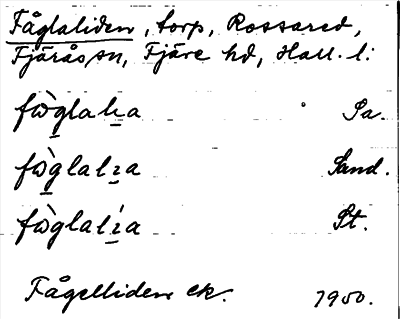 Fåglaliden, torp, Rossared,
Fjärås sn, Fjäre hd, Hall. l.
fò̱glali̱a Sa.
fò̱glali̱a Sand.
fò̱glalí̱a St.
Fågelliden ek. 1950.